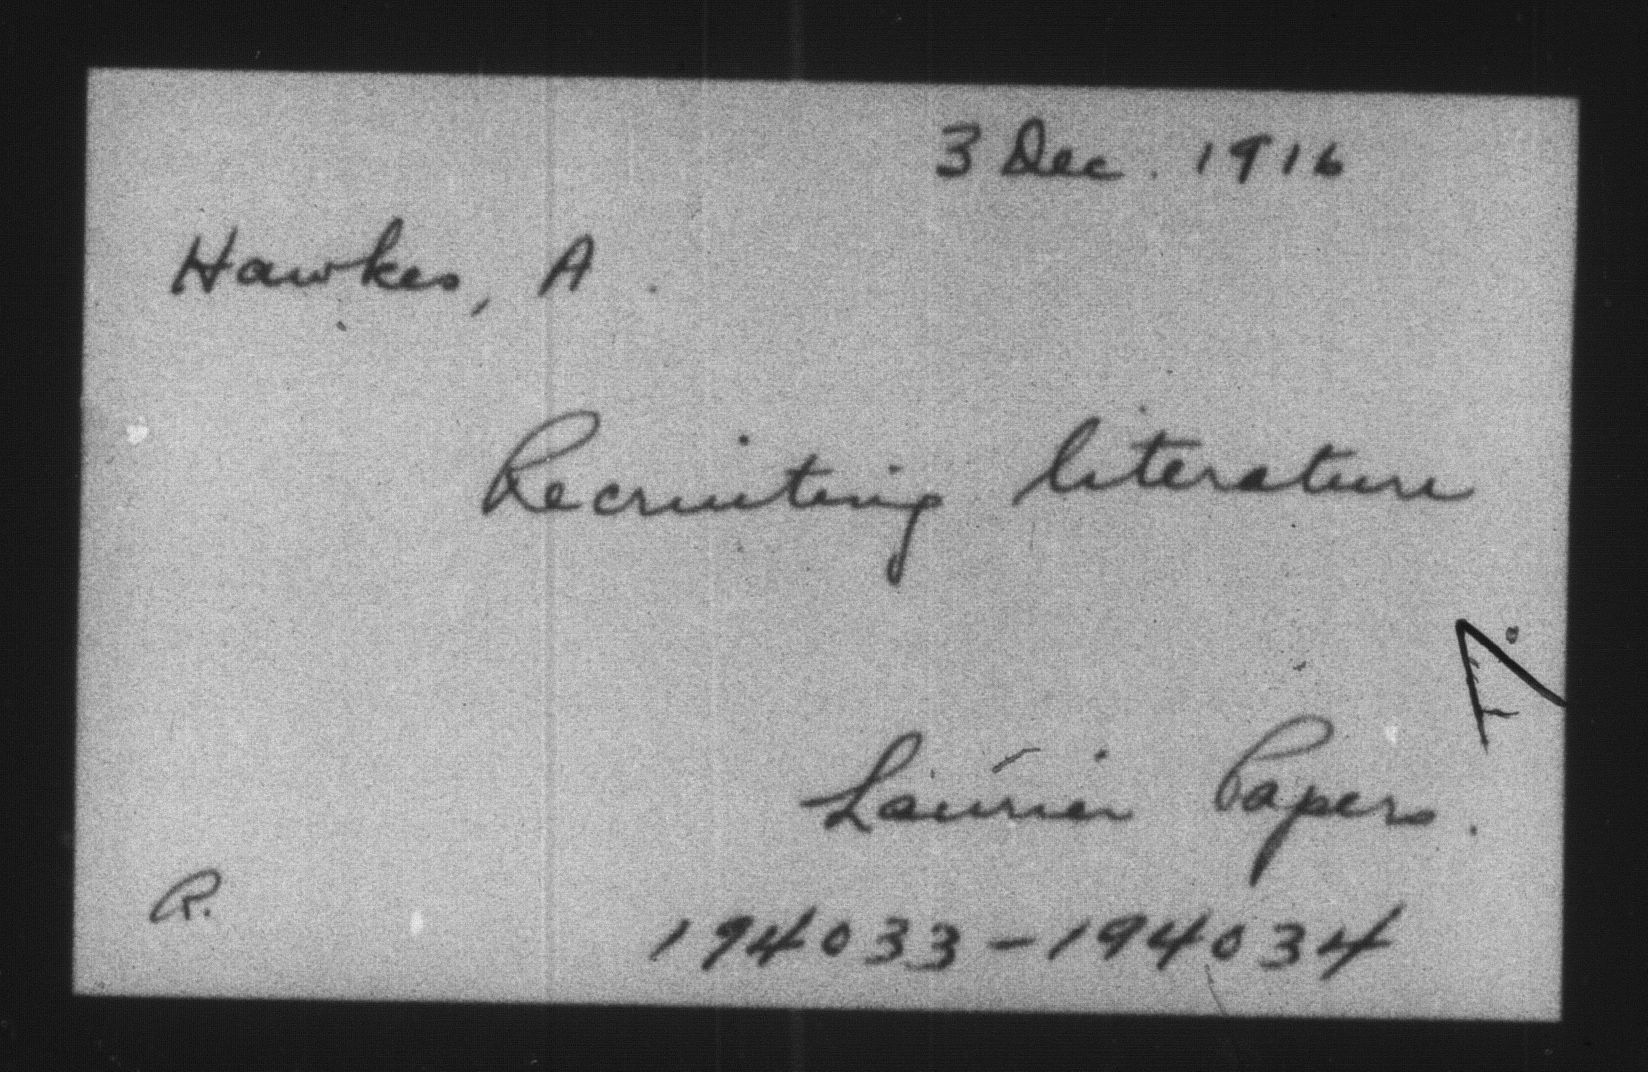 3 Dec. 1916
Hawkes, A.
Recruiting literature
Laurier Papers.
R.
194033-194034